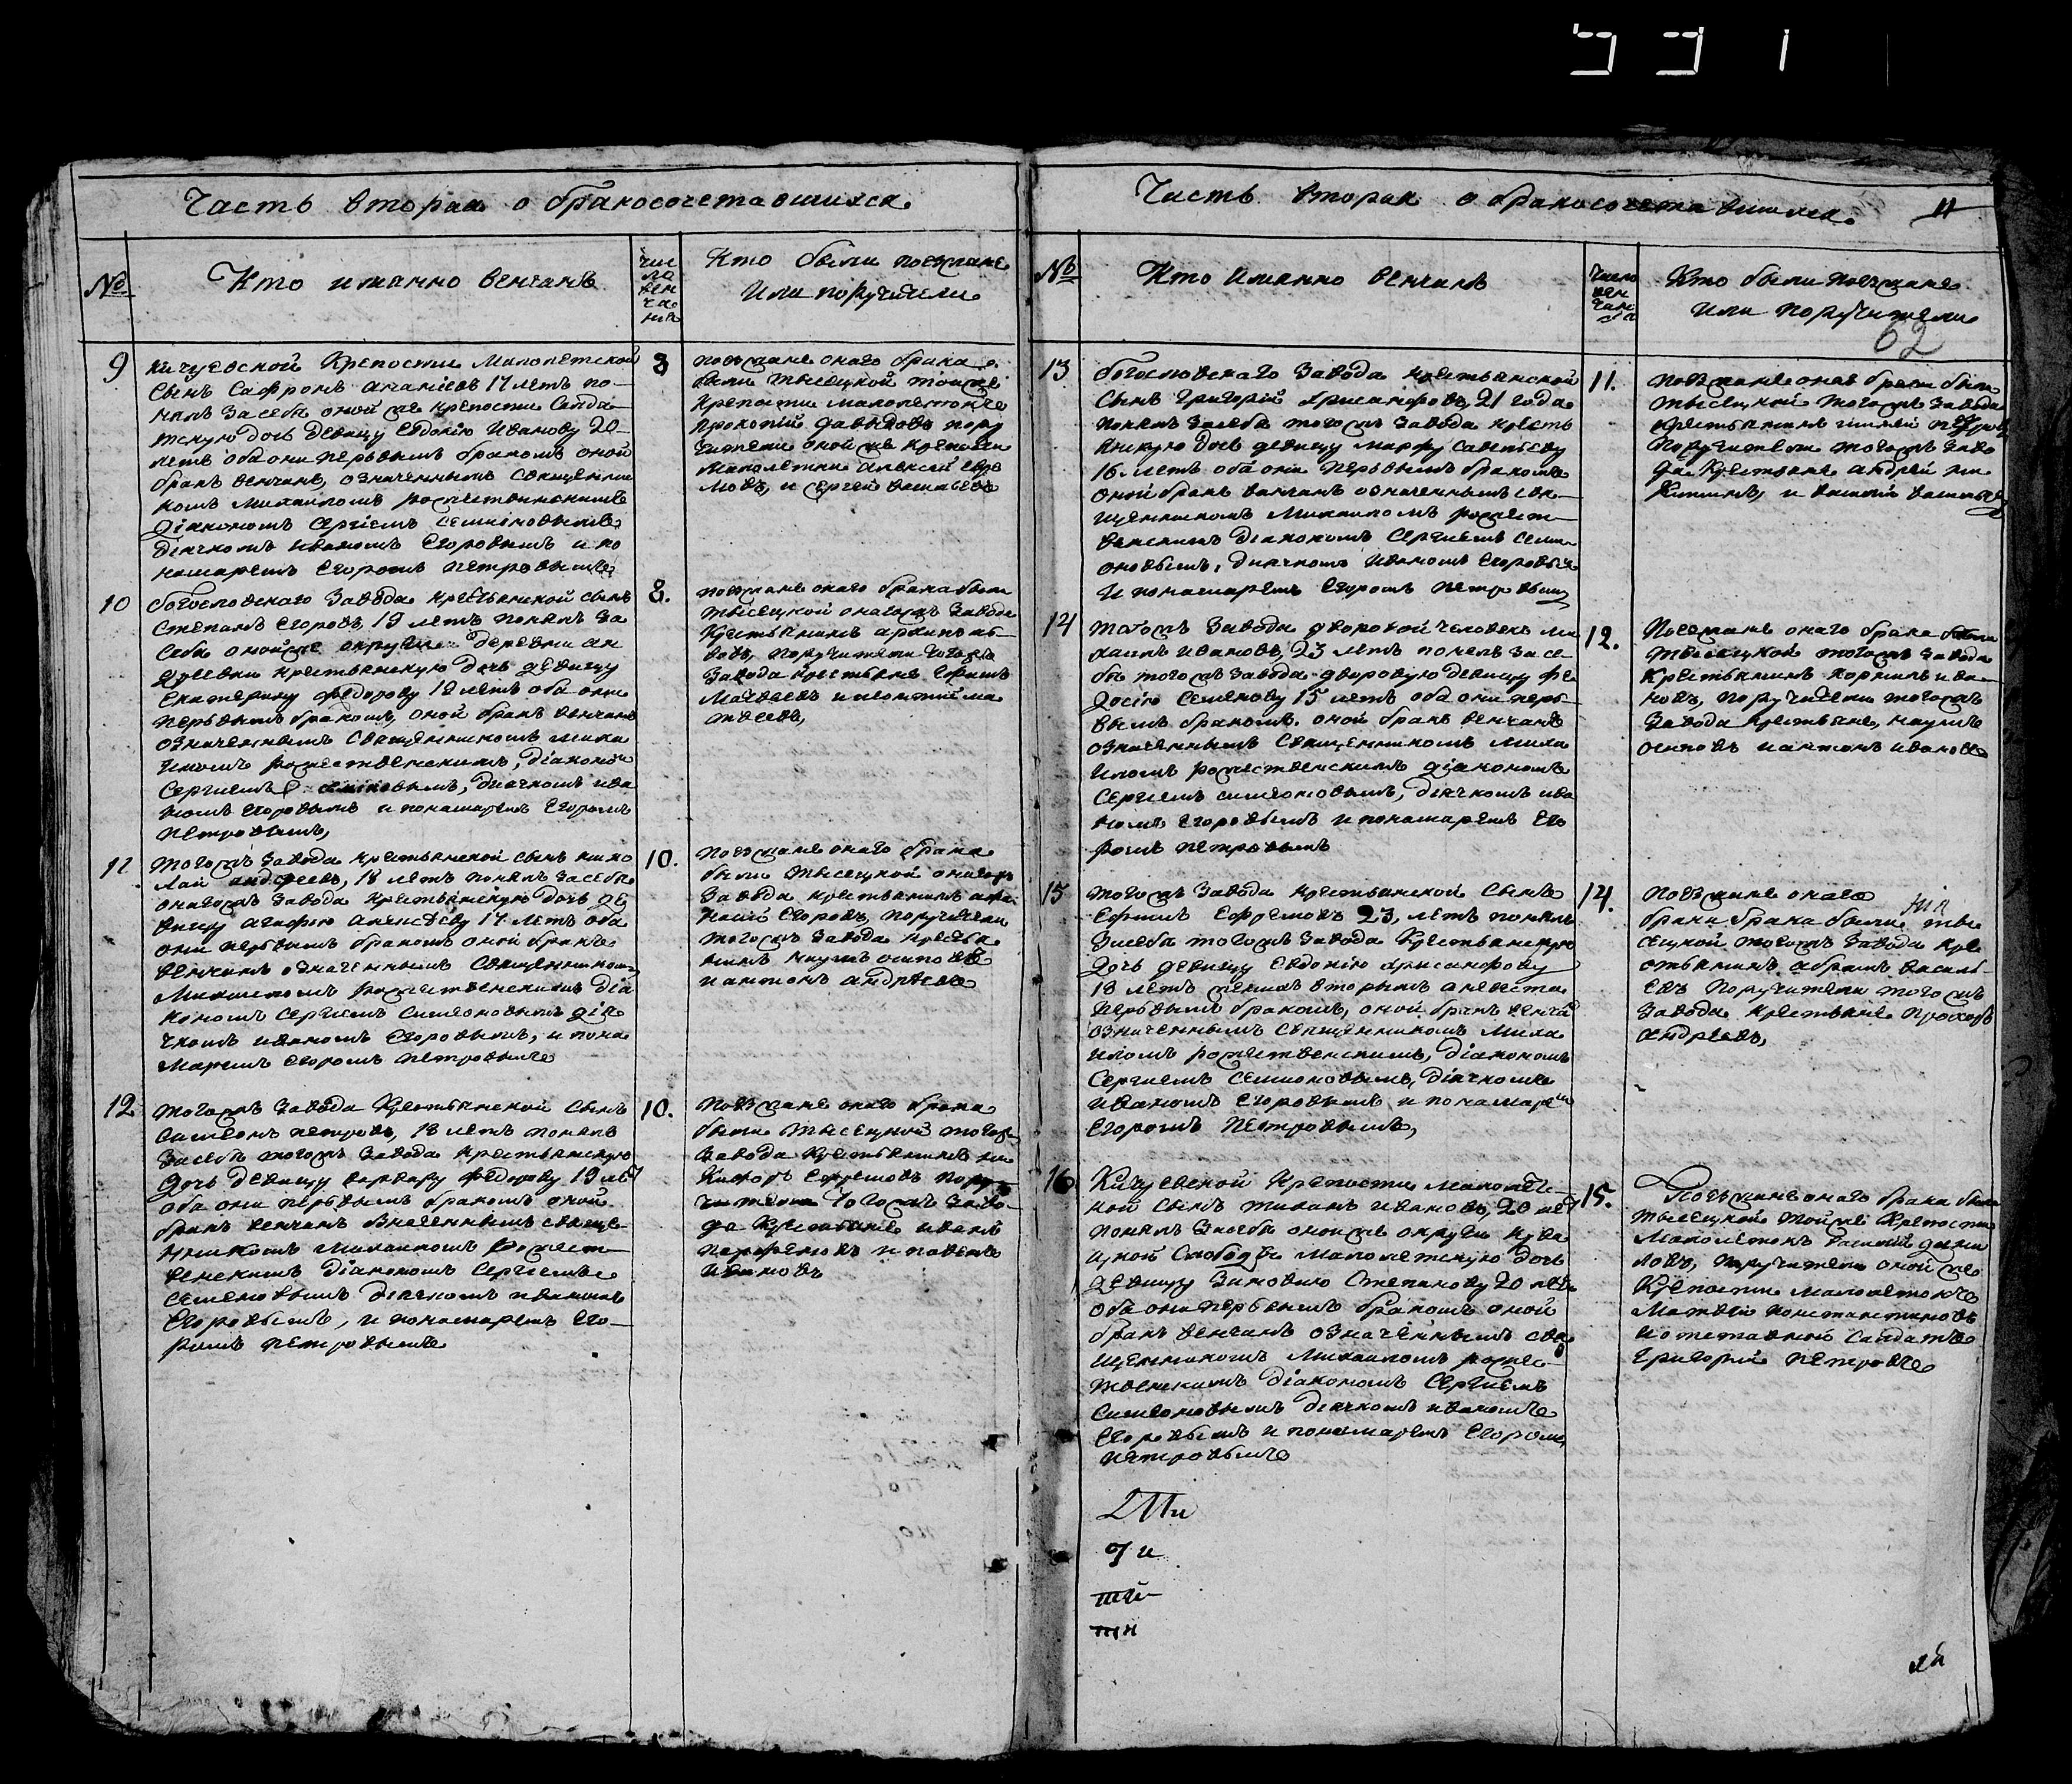 Часть вторая о бракосочетавшихся
№
Кто именно венчанъ
чис
ло
вен
ча
ния
Кто были поезжане
или поручители
9
Кичуевской крепости малолетской
сынъ Сафронъ Ананіевъ 17 летъ по-
нялъ за себя оной же крепости салда-
тскую дочь девицу Евдокію Иванову 20-
летъ оба они первымъ бракомъ оной
бракъ венчанъ, означеннымъ священни
комъ Михаиломъ рожественскимъ
діакономъ Сергіемъ
діячкомъ Иваномъ Егоровымъ и по
намаремъ Егоромъ Петровымъ
8
поезжане онаго брака
были тысецкой тойже
крепости малолетокъ
прокопій давыдовъ пору
чители оной же крепости
малолетки алексей
и сергей
10
богословскаго завода крестьянской сынъ
Степанъ Егоровъ, 19 летъ понялъ за
себя оной же округи деревни
крестьянскую дочь девицу
Екатерину федорову 19 летъ оба они
первымъ бракомъ, оной бракъ венчанъ
означеннымъ священникомъ миха
иломъ рожественскимъ, діакономъ
Сергиемъ дьячкомъ ива
номъ Егоровымъ и понамаремъ Егоромъ
Петровымъ,
8.
поезжане онаго брака были
тысецкой онагожъ завода
крестьянинъ
поручители тогожъ
завода крестьяне Ефимъ
Матвеевъ и леонтій ма
твеевъ,
11
тогожъ завода крестьянской сынъ нико
лай андреевъ, 18 летъ понялъ засебя
онагожъ завода крестьянскую дочь де
вицу агафію алексееву 17 летъ оба
они первымъ бракомъ оной бракъ
венчанъ означеннымъ священникомъ
Михаиломъ рожественскимъ діа
кономъ Сергиемъ Симеоновымъ дія
чкомъ иваномъ Егоровымъ, и пона
маремъ Егоромъ Петровымъ
10.
поезжане онаго брака
были тысецкой онагожъ
завода крестьянинъ афа
насій Егоровъ, поручители
тогожъ завода крестья
нинъ наумъ осиповъ
и антонъ андреевъ
12
тогожъ завода крестьянской сынъ
Симеонъ петровъ, 18 летъ понялъ
засебя тогожъ завода крестьянскую
дочь девицу варвару федорову 19 летъ
оба они первымъ бракомъ оной
бракъ венчанъ значеннымъ свяще-
нникомъ михаиломъ рожест-
венскимъ діакономъ Сергиемъ
Семеновымъ діячкомъ иваномъ
Егоровымъ, и понамаремъ Его-
ромъ петровымъ
10.
поезжане онаго брака
были тысецкой тогожъ
завода крестьянинъ ни
кифоръ Ефремовъ пору
чители тогожъ заво-
да крестьяне иванъ
парфеновъ и павелъ
ивановъ
Часть вторая о бракосочетавшихся
11
№
Кто именно венчанъ
число
вен
чани
я
Кто были поезжане
или поручители
62
13
богословскаго завода крестьянской
сынъ григорій хрисанфовъ, 21 года
понялъ засебя тогожъ завода кресть
янскую дочь девицу марфу савельеву
16 летъ оба они первымъ бракомъ
оной бракъ венчанъ означеннымъ свя-
щенникомъ михаиломъ рожест-
венскимъ діакономъ Сергиемъ симе
оновымъ, дьячкомъ иваномъ Егоровымъ
и понамаремъ Егоромъ Петровымъ
11.
поезжане онаго брака были
тысецкой тогожъ завода
крестьянинъ
поручители тогожъ заво
да крестьяне андрей ни
китинъ, и василій васильевъ
14
тогожъ завода дворовой человекъ ми
хаилъ ивановъ, 23 летъ понялъ за се-
бя тогожъ завода дворовую девицу фе
досію Семенову 15 летъ оба они пер-
вымъ бракомъ оной бракъ венчанъ
означеннымъ священникомъ миха
иломъ рожественскимъ діакономъ
Сергиемъ симеоновымъ, діячкомъ ива
номъ Егоровымъ и понамаремъ Его
ромъ петровымъ
12.
поезжане онаго брака были
тысецкой тогожъ завода
крестьянинъ корнилъ ива-
новъ, поручители тогожъ
завода крестьяне, наумъ
осиповъ и антонъ ивановъ
15
тогожъ завода крестьянской сынъ
Ефимъ Ефремовъ 23, летъ понялъ
засебя тогожъ завода крестьянскую
дочь девицу Евдокію хрисанфову
18 летъ женихъ вторымъ а невеста
первымъ бракомъ, оной бракъ венчанъ
означеннымъ священникомъ миха
иломъ рожественскимъ, діакономъ
Сергиемъ Семионовымъ, діячкомъ
иваномъ Егоровымъ и понамаремъ
Егоромъ Петровымъ,
14.
поезжане онаго
брака брака были тыс
сецкой тогожъ завода кре
стьянинъ абрамъ василь-
евъ поручители тогожъ
завода крестьяне прохоръ
андреевъ,
16
Кичуевской крепости малолетс-
кой сынъ ивановъ, 20 летъ
понялъ засебя оной же округи кува
цкой слободы малолетскую дочь
девицу зиновию степанову 20 летъ
оба они первымъ бракомъ оной
бракъ венчанъ означеннымъ свя
щенникомъ михаиломъ рожес-
твенскимъ діакономъ Сергиемъ
симеоновымъ діячкомъ иваномъ
Егоровымъ и понамаремъ Егоромъ
петровымъ
15.
Поезжане онаго брака были
тысецкой тойже крепости
малолетокъ василій дани
ловъ, поручители оной же
крепости малолетокъ
матвей константиновъ
и отставной салдатъ
григорій петровъ